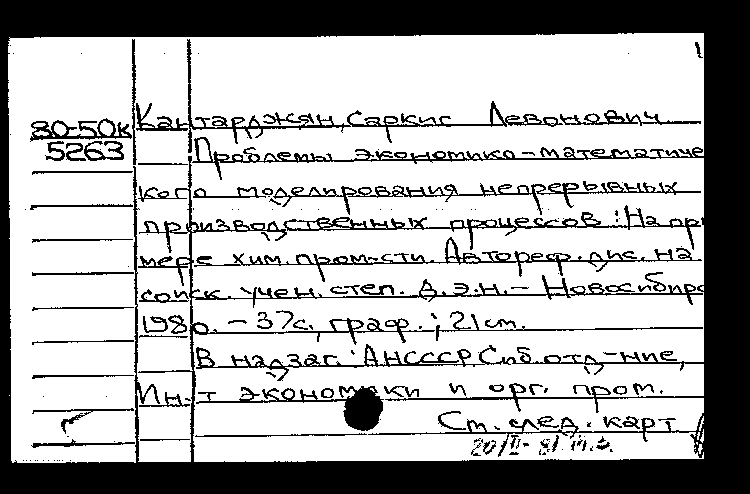 80-50к Кантарджян, Саркис Левонович
5263 Проблемы экономико-математичес
кого моделирования непрерывных
производственных процессов: На при
мере хим. пром-сти. Автореф. дис. на
соиск. учен. степ. д.э.н. - Новосибирс
1980. - 37с., граф.; 21 см.
В надзаг.: АН СССР, Сиб. отд-ние,
Ин-т экономики и орг. пром.
См. след. карт
20/II-81